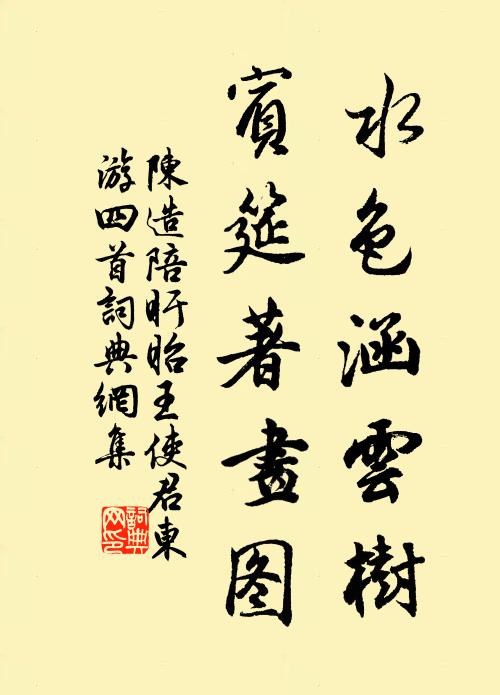 水色涵雲樹
賓筵著畫图
陳造陪盱眙王使君東
游四首詞典網集
詞典
网印